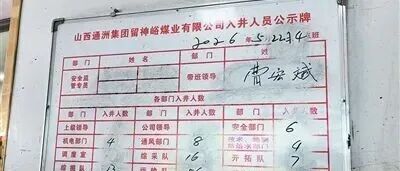 山西通洲集团留神峪煤业有限公司入井人员公示牌
2026年5.22 4点班
部门 姓名 部门
安全监管专员 带班领导 曹宏斌
各部门入井人数
部门 入井人数 部门 入井人数 部门 入井人数
上级领导 公司领导 安全部门 6
机电部门 4 通风部门 8 技术、地测防治水部门 4
调度室 综采队 16 开拓队 7
综掘队 13